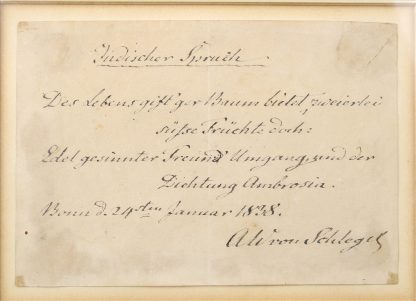 Indischer Spruch.
Des Lebens gift'ger Baum bietet zweierlei
süsse Früchte doch:
Edel gesinnter Freund' Umgang, und der
Dichtung Ambrosia.
Bonn d. 24sten Januar 1838.
AW von Schlegel